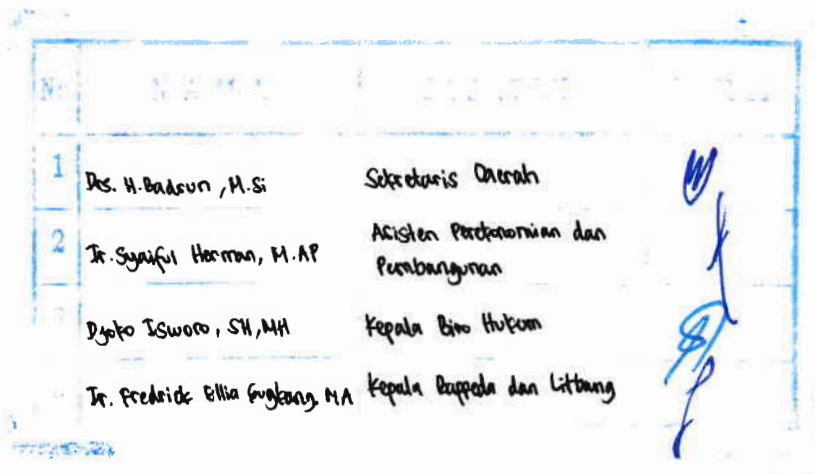 N A M A
1 Drs. H. Badrun, M.Si Sekretaris Daerah
2 Ir. Syaiful Herman, M.AP Asisten Perekonomian dan
Pembangunan
Djoko Isworo, SH, MH Kepala Biro Hukum
Ir. Fredrick Ellia MA Kepala Bappeda dan Litbang